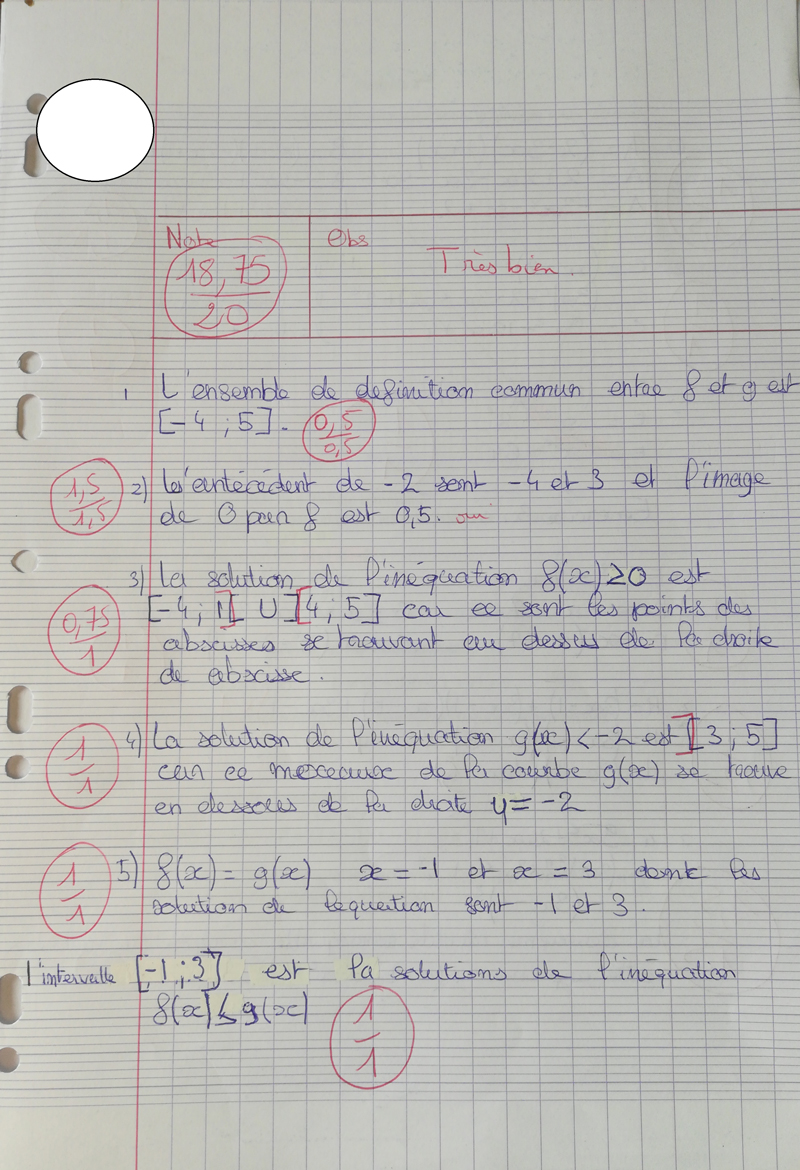 Note
Obs
18,75
20
Très bien.
1 L'ensemble de definition commun entre f et g est
[-4 ; 5].
0,5
0,5
1,5
1,5
2) les antécédent de -2 sont -4 et 3 et l'image
de 0 par f est 0,5. oui
3) La solution de l'inéquation f(x) ≥ 0 est
0,75
1
[-4 ; 1] U [4 ; 5] car ce sont les points des
abscisses se trouvant au dessus de la droite
de abscisse.
1
1
4) La solution de l'inéquation g(x) < -2 est ]3 ; 5]
car ce morceaux de la courbe g(x) se trouve
en dessous de la droite y = -2
1
1
5) f(x) = g(x) x = -1 et x = 3 donc les
solution de lequation sont -1 et 3.
l'intervalle [-1 ; 3] est la solutions de l'inéquation
f(x) ≤ g(x)
1
1